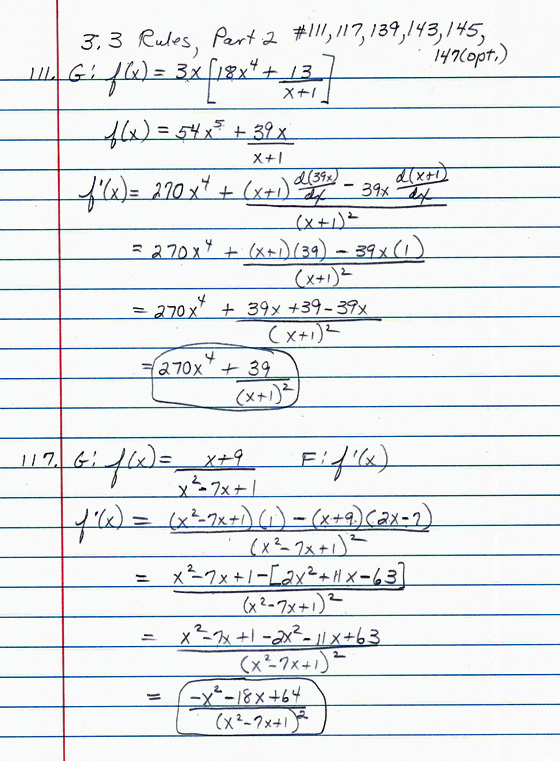 3.3 Rules, Part 2 #111, 117, 139, 143, 145,
147(opt.)
111. G: f(x) = 3x[18x^4 + 13/(x+1)]
f(x) = 54x^5 + 39x/(x+1)
f'(x) = 270x^4 + ((x+1) d(39x)/dx - 39x d(x+1)/dx)/(x+1)^2
= 270x^4 + ((x+1)(39) - 39x(1))/(x+1)^2
= 270x^4 + (39x+39-39x)/(x+1)^2
= 270x^4 + 39/(x+1)^2
117. G: f(x) = (x+9)/(x^2-7x+1) F: f'(x)
f'(x) = ((x^2-7x+1)(1) - (x+9)(2x-7))/(x^2-7x+1)^2
= (x^2-7x+1-[2x^2+11x-63])/(x^2-7x+1)^2
= (x^2-7x+1-2x^2-11x+63)/(x^2-7x+1)^2
= (-x^2-18x+64)/(x^2-7x+1)^2